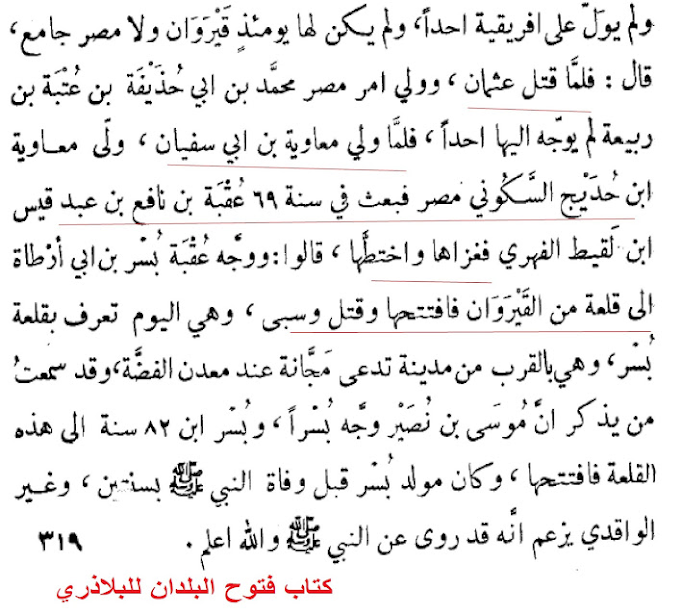 ولم يولّ على افريقية احداً، ولم يكن لها يومئذٍ قَيْرَوَان ولا مصر جامع،
قال : فلمَّا قتل عثمان ، وولي امر مصر محمَّد بن ابي حُذَيْفَة بن عُتْبَة بن
ربيعة لم يوجّه اليها احداً، فلمَّا ولي معاوية بن ابي سفيان ، ولّى معـاوية
ابن حُدَيْج السَّكُوني مصر فبعث في سنة ٦٩ عُقْبَة بن نافع بن عبد قيس
ابن لَقيط الفهري فغزاها واختطَّها ، قالوا: ووجَّه عُقْبَة بُسْر بن ابي أرْطاة
الى قلعة من القَيْرَوَان فافتتحها وقتل وسبى ، وهي اليوم تعرف بقلعة
بُسْر، وهي بالقرب من مدينة تدعى مَجَّانة عند معدن الفضَّة، وقد سمعتُ
من يذكر انَّ مُوسَى بن نُصَيْر وجَّه بُسْراً ، وبُسْر ابن ٨٢ سنة الى هذه
القلعة فافتتحها ، وكان مولد بُسْر قبل وفاة النبي ﷺ بسنتين ، وغـير
الواقدي يزعم انَّه قد روى عن النبي ﷺ والله اعلم . ٣١٩
كتاب فتوح البلدان للبلاذري